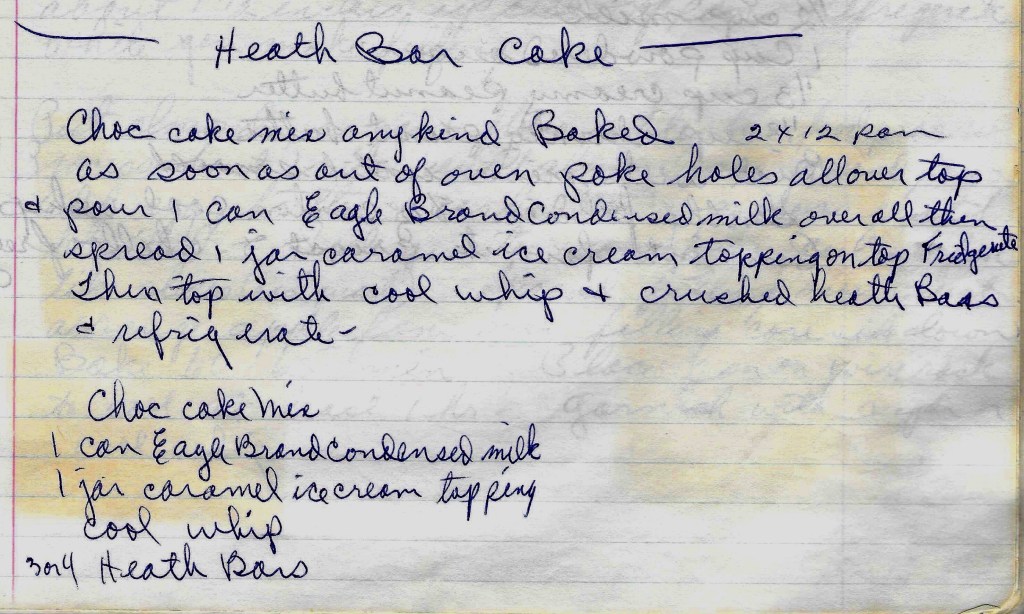 Heath Bar Cake
Choc cake mix any kind Baked 2 x 12 pan
as soon as out of oven poke holes all over top
& pour 1 can Eagle Brand Condensed milk over all then
spread 1 jar caramel ice cream topping on top Fridgerate
Then top with cool whip & crushed heath Bars
& refrigerate -
Choc cake mix
1 can Eagle Brand Condensed milk
1 jar caramel ice cream topping
cool whip
3 or 4 Heath Bars
1 cup
1/3 cup creamy peanut butter